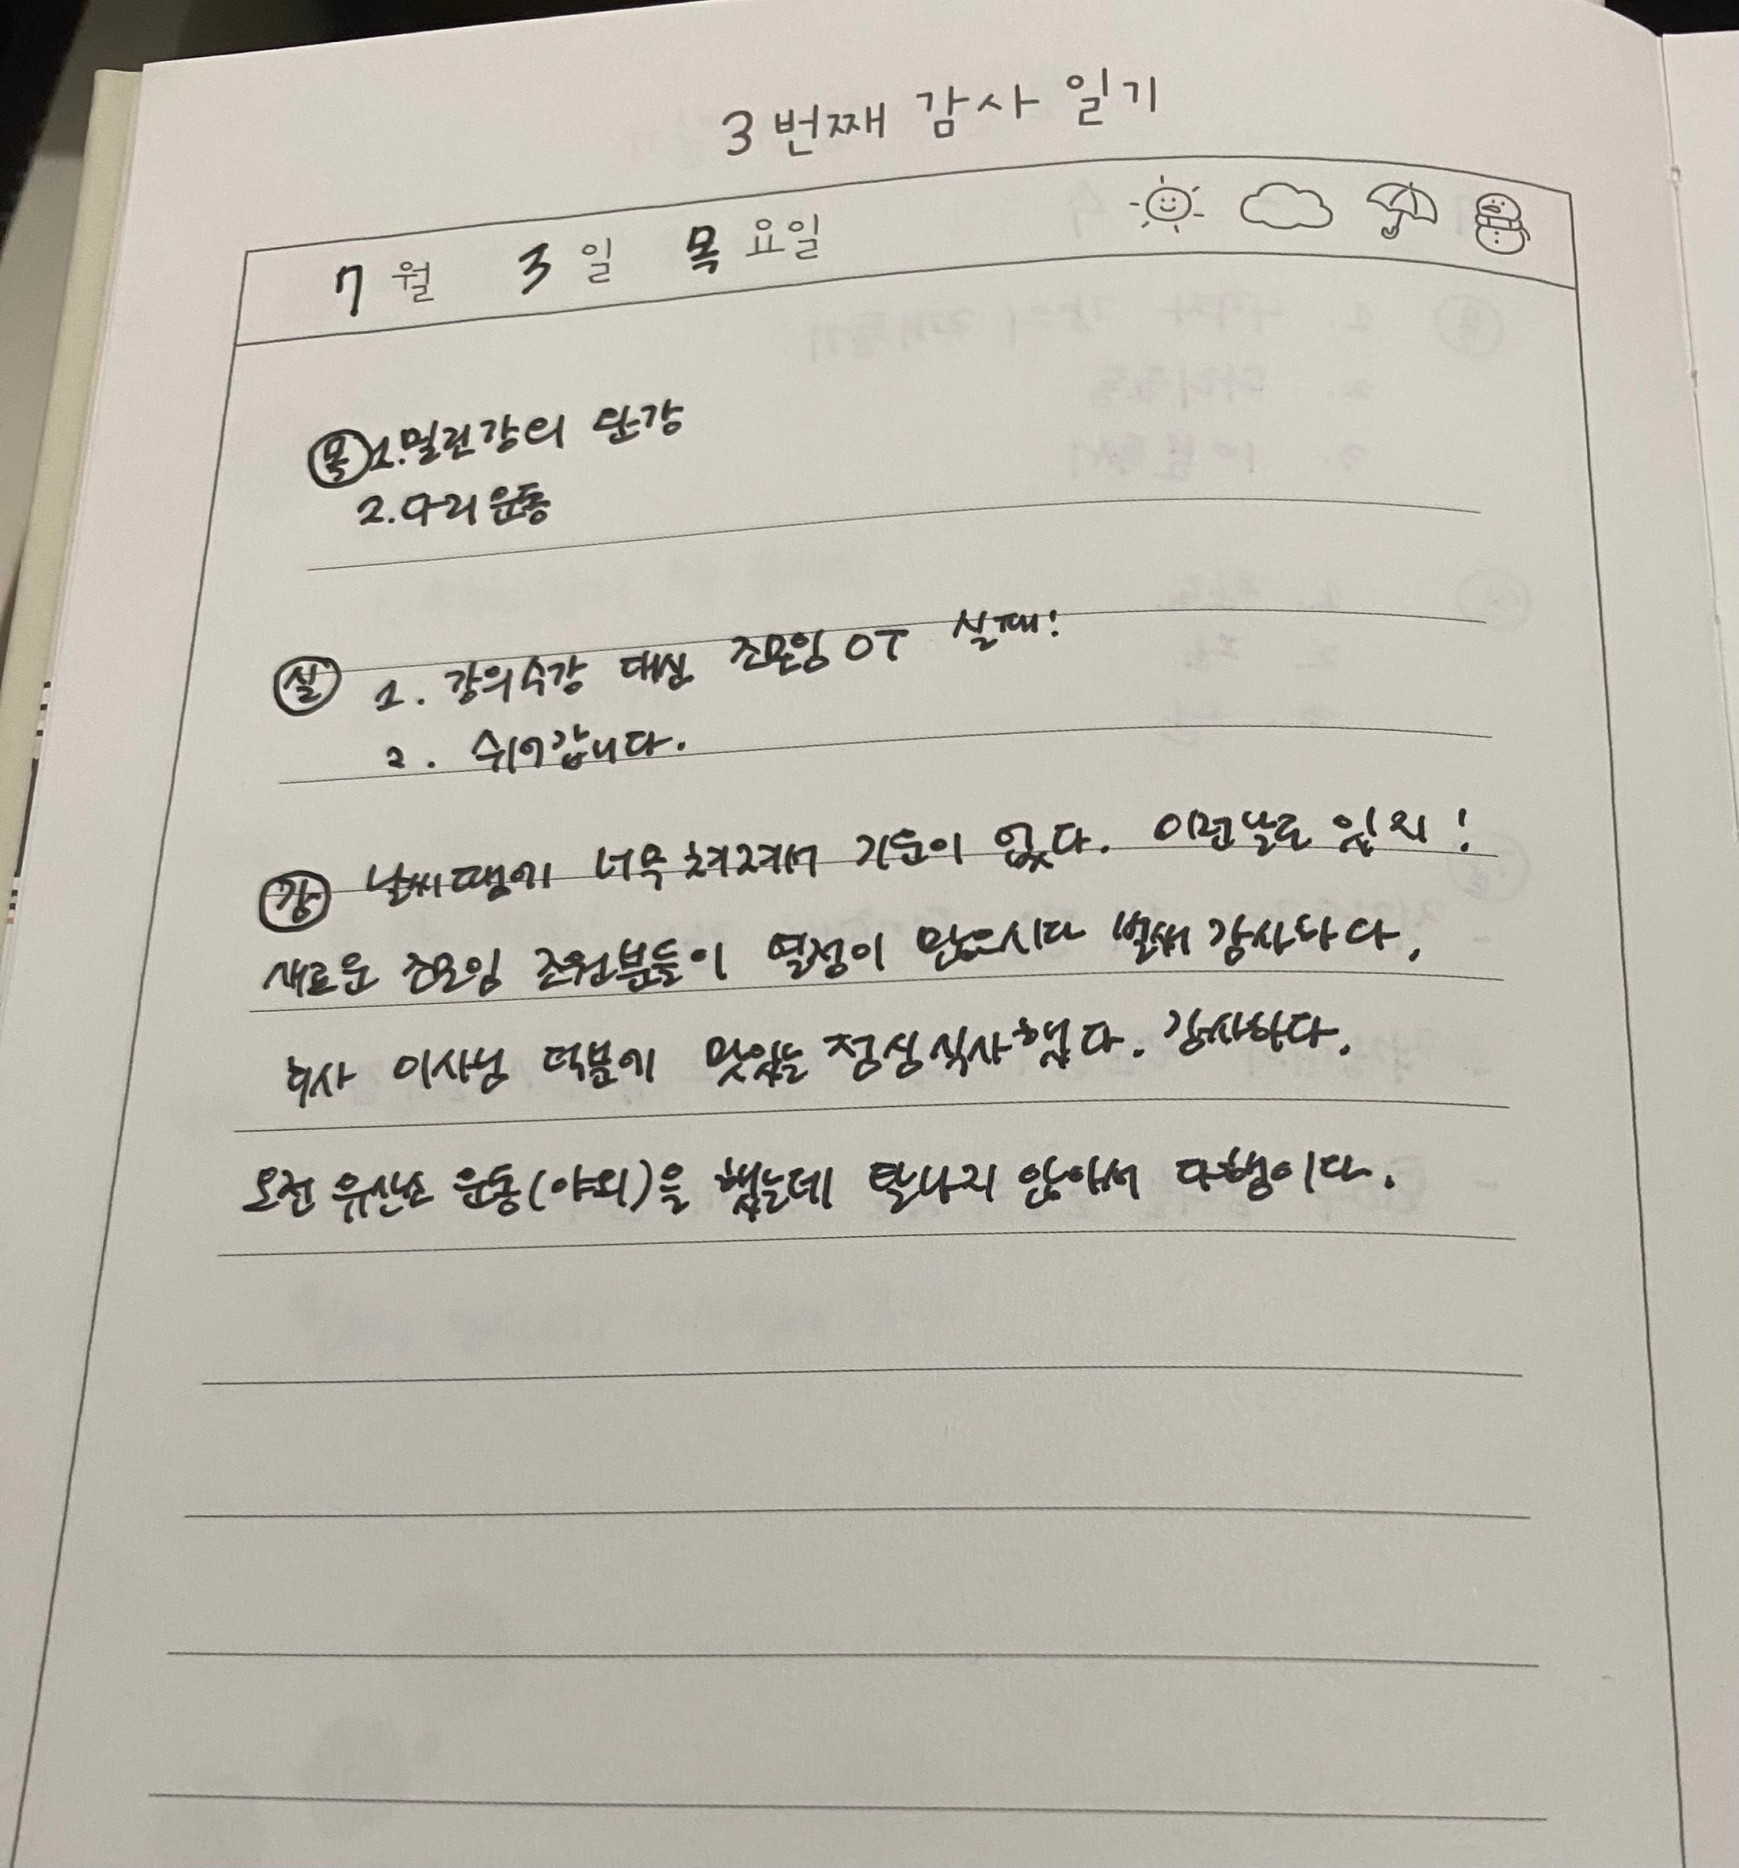 3번째 감사 일기
7월 3일 목요일
목 1. 밀린강의 완강
2. 다리운동
실 1. 강의수강 대신 조모임 OT 실패!
2. 쉬어갑니다.
감 날씨때문에 너무 쳐져서 기운이 없다. 이런날도 있지!
새로운 조모임 조원분들이 열정이 많으시다 벌써 감사하다.
이사님 덕분에 맛있는 점심식사 했다. 감사하다.
오전 유산소 운동(야외)을 했는데 탈나지 않아서 다행이다.